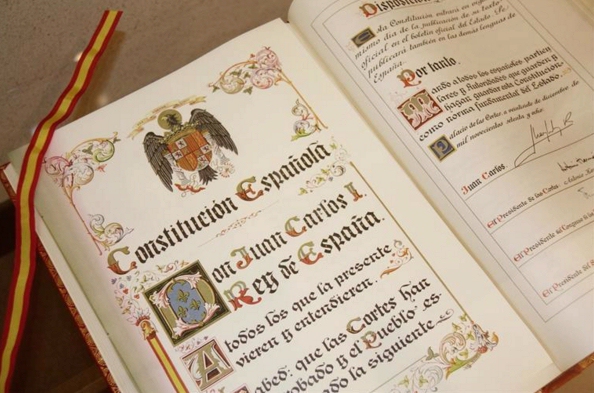 Constitución Española
Don Juan Carlos I.
Rey de España.
A todos los que la presente
vieren y entendieren.
Sabed: que las Cortes han
probado y el Pueblo es
ado la siguiente
Disposición
Esta Constitución entrará en vigor
mismo día de la publicación de su texto
oficial en el boletín oficial del Estado. Se
publicará también en las demás lenguas de
España.
Por tanto,
Mando a todos los españoles particu
lares y Autoridades que guarden y
hagan guardar esta Constitución
como norma fundamental del Estado.
Palacio de las Cortes a de diciembre de
mil novecientos setenta y ocho
Juan Carlos
El Presidente de las Cortes
El Presidente del Congreso de los
El Presidente del